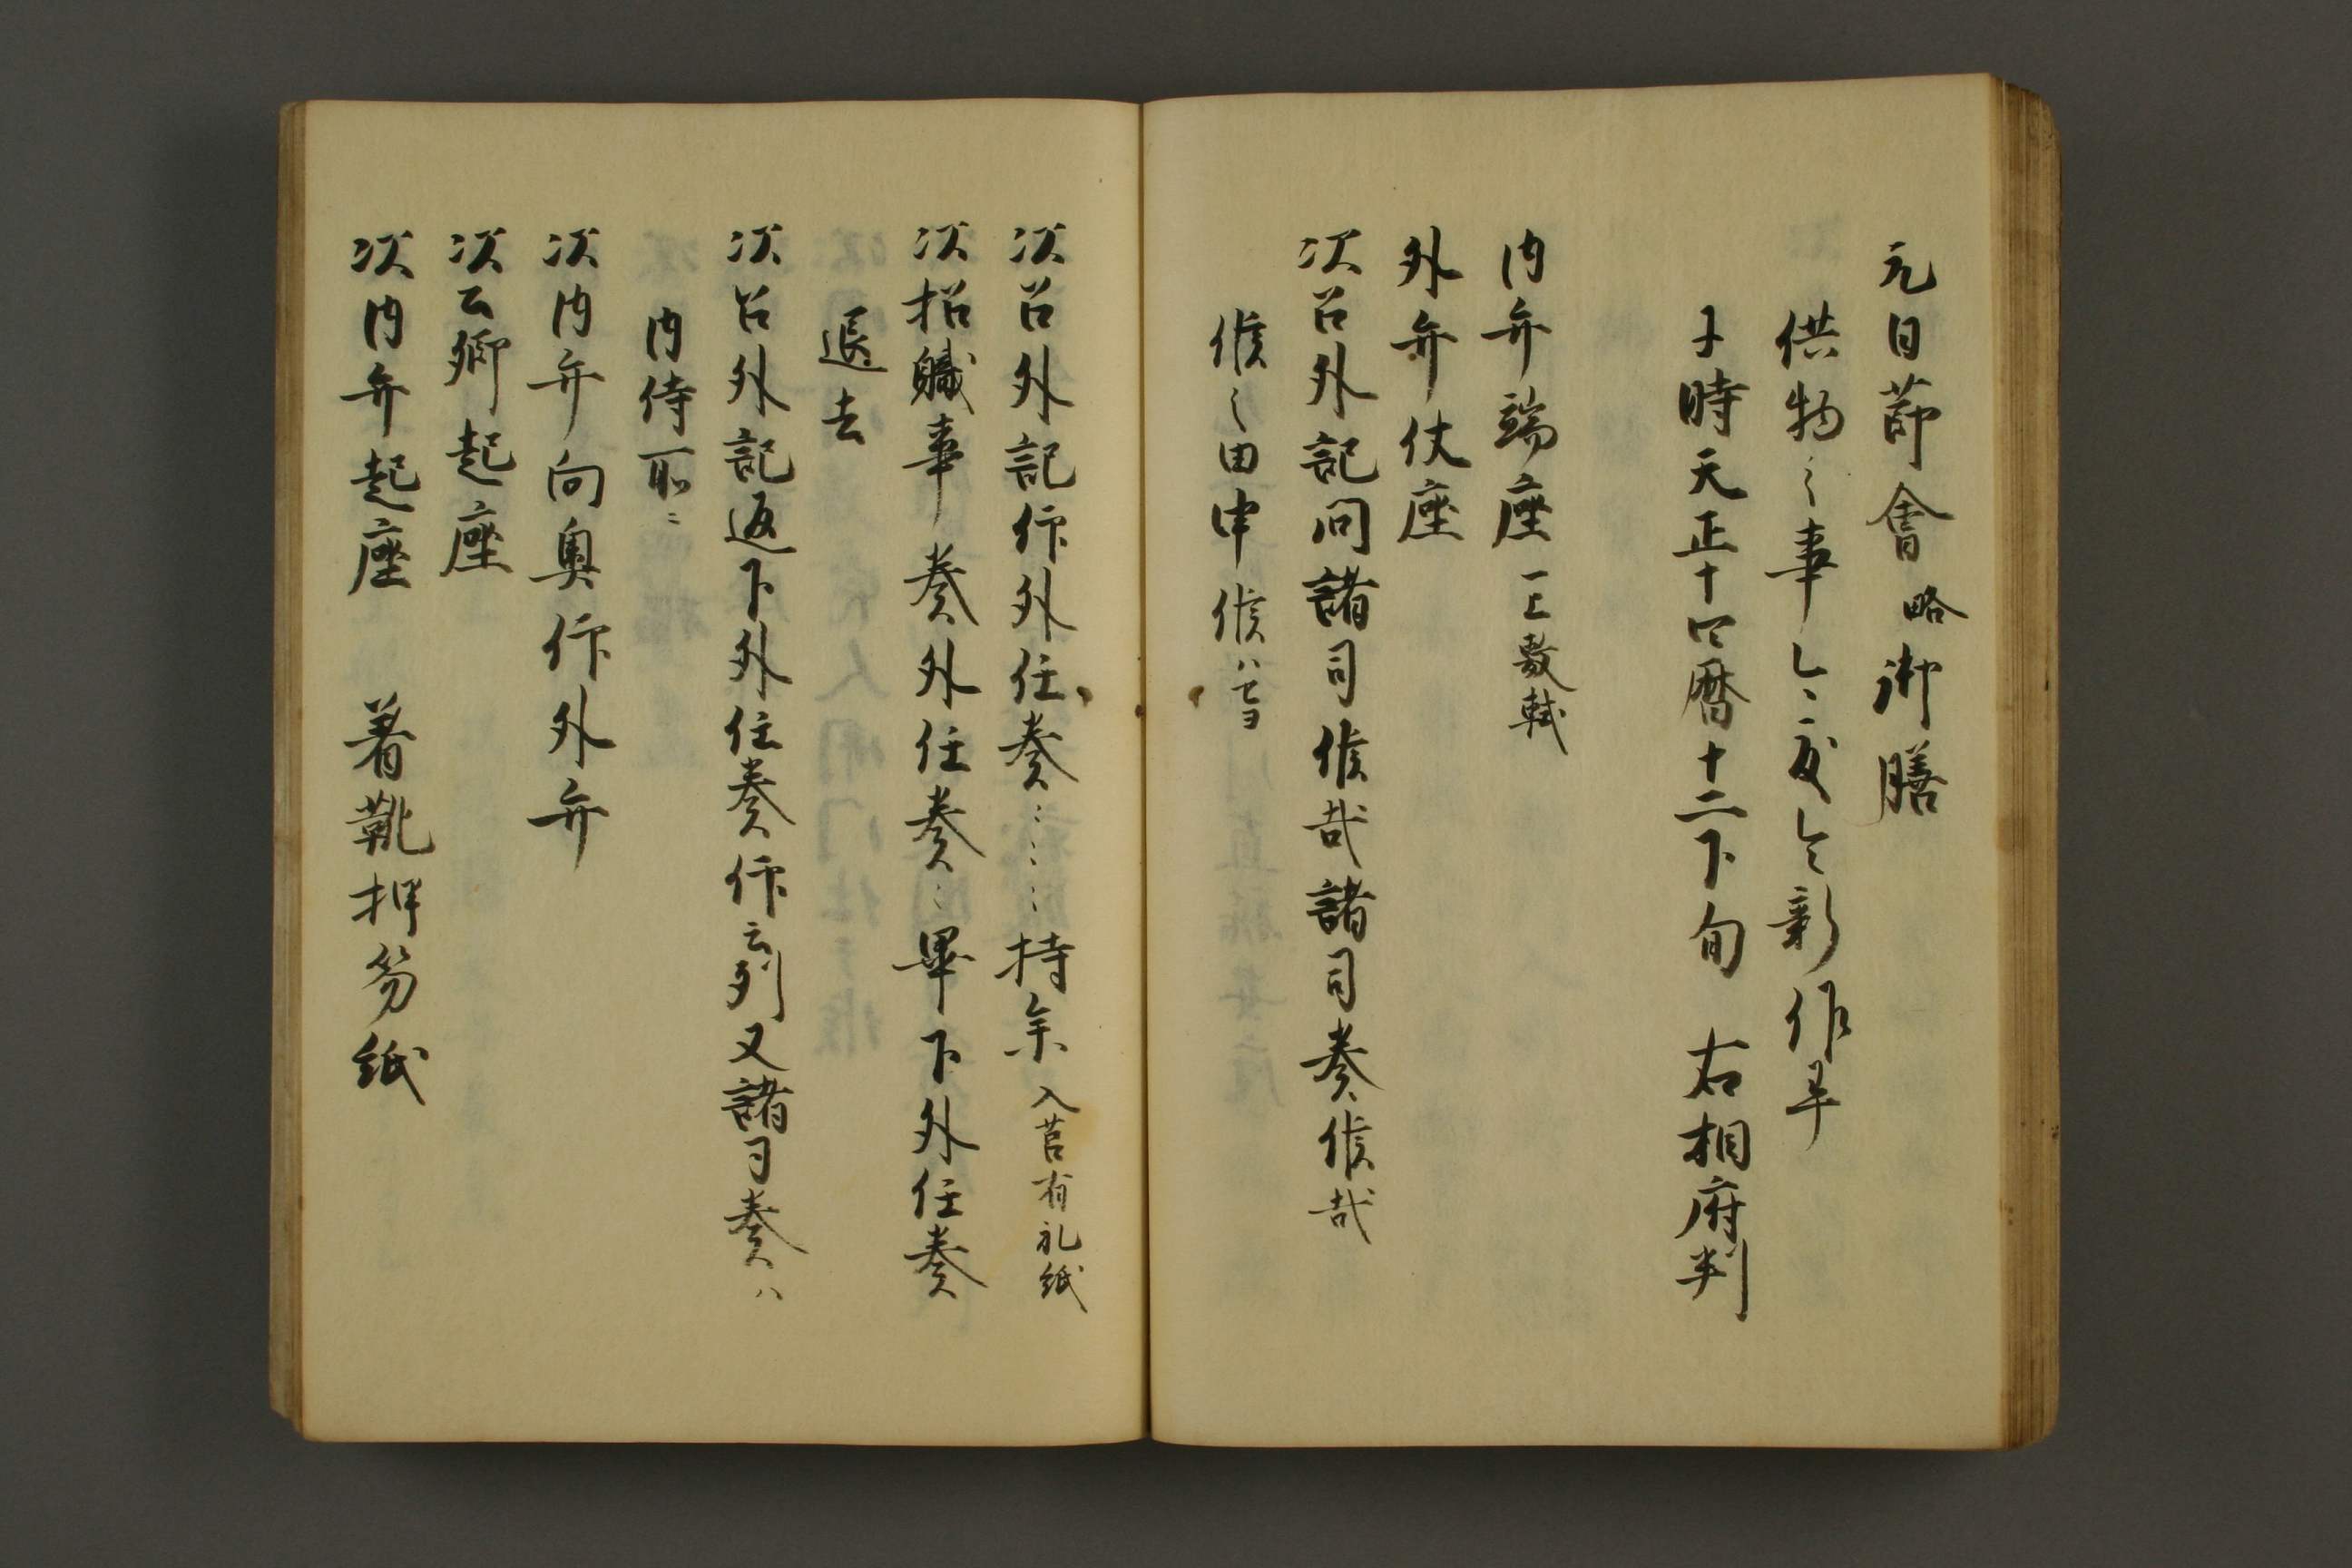 元日節會 略御膳
供物之事 新作畢
于時天正十四暦十二下旬 右相府判
内弁端座 一上敷軾
外弁仗座
次召外記問諸司候哉諸司奏候哉
候之由申候ハセヨ
次召外記仰外任奏〻〻〻持参 入筥有礼紙
次招職事奏外任奏〻畢下外任奏
退去
次召外記返下外任奏仰云列又諸司奏ハ
内侍所〻
次内弁向奥仰外弁
次公卿起座
次内弁起座 着靴押笏紙